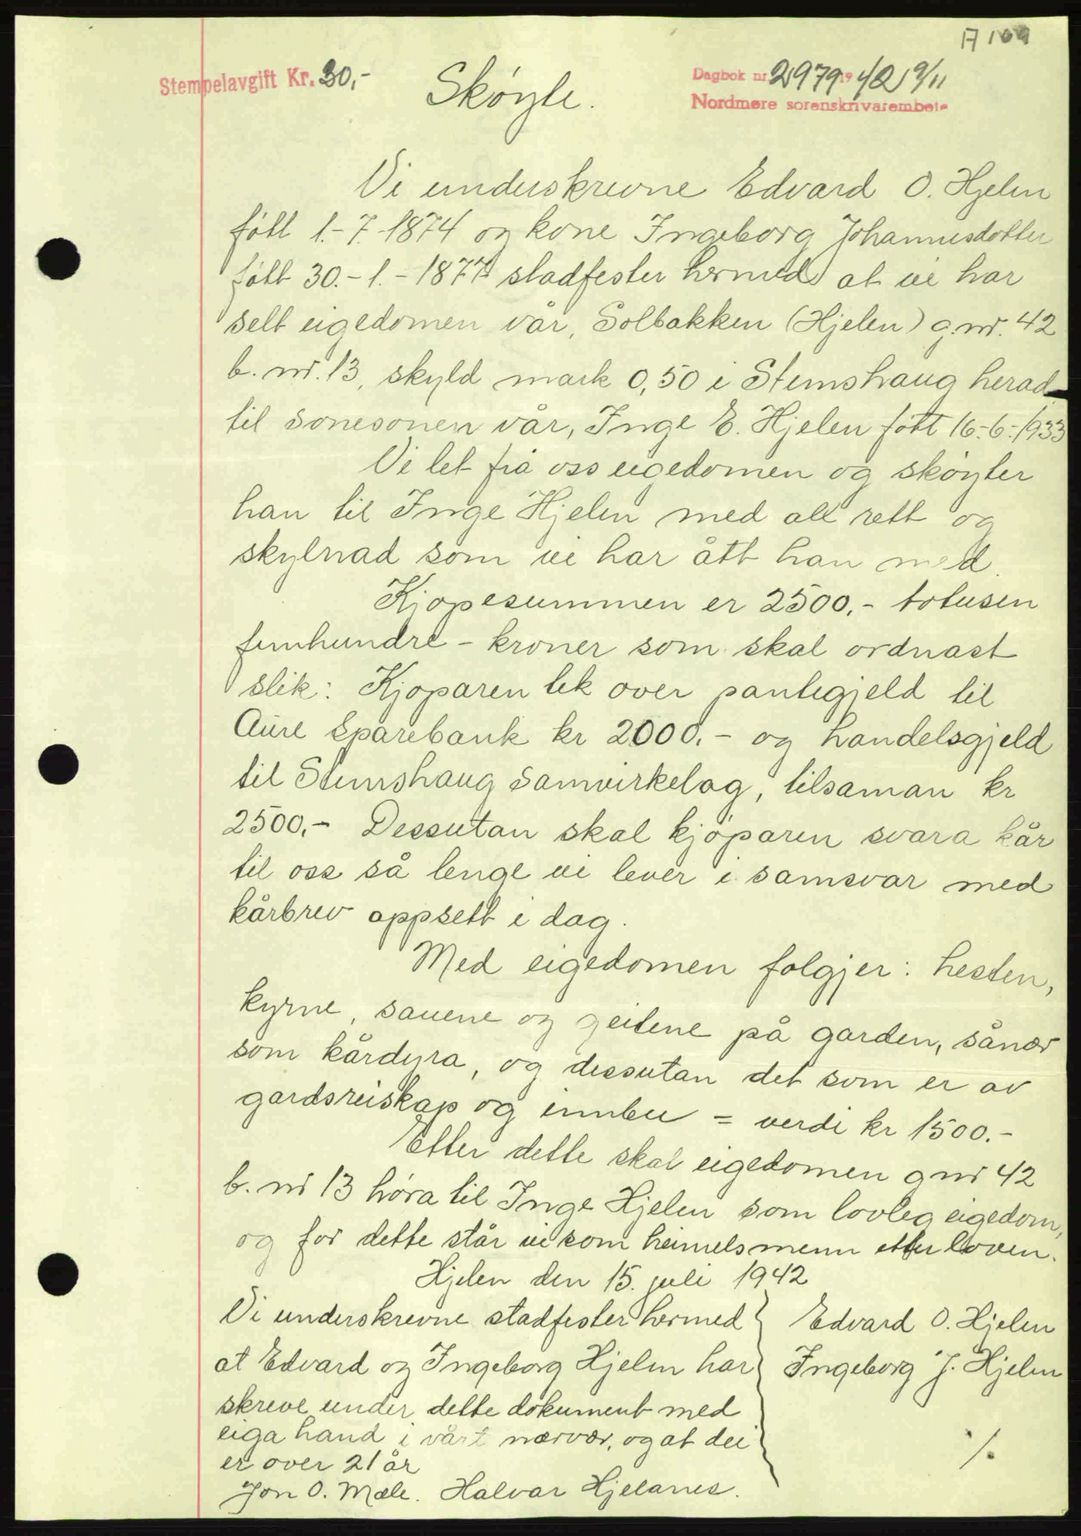 A 109
Stempelavgift Kr. 30,-
Skøyte.
Dagbok nr 2979 19 42 9/11
Nordmøre sorenskrivarembete
Vi underskrevne Edvard O. Hjelen
født 1.-7.-1874 og kone Ingeborg Johannesdotter
født 30.-1.-1877 stadfester hermed at vi har
selt eigedomen vår, Solbakken (Hjelen) g.nr. 42
b. nr. 13, skyld mark 0,50 i Stemshaug herad
til sonesonen vår, Inge E. Hjelen født 16.-6.-1933
Vi let frå oss eigedomen og skøyter
han til Inge Hjelen med all rett og
skylnad som vi har ått han med.
Kjøpesummen er 2500.- totusen
femhundre - kroner som skal ordnast
slik: Kjøparen tek over pantegjeld til
Aure Sparebank kr 2000.- og handelsgjeld
til Stemshaug Samvirkelag, tilsaman kr
2500,- Dessutan skal kjøparen svara kår
til oss så lenge vi lever i samsvar med
kårbrev oppsett i dag.
Med eigedomen følgjer: hesten,
kyrne, sauene og geitene på garden, sånær
som kårdyra, og dessutan det som er av
gardsreiskap og innbu = verdi kr 1500.-
Etter dette skal eigedomen g nr 42
b. nr 13 høra til Inge Hjelen som lovleg eigedom,
og for dette står vi som heimelsmenn etter loven.
Hjelen den 15. juli 1942
Vi underskrevne stadfester hermed
at Edvard og Ingeborg Hjelen har
skreve under dette dokument med
eiga hand i vårt nærvær, og at dei
er over 21 år
Jon O. Mæle. Halvar Hjelanes.
Edvard O. Hjelen
Ingeborg J. Hjelen
./.